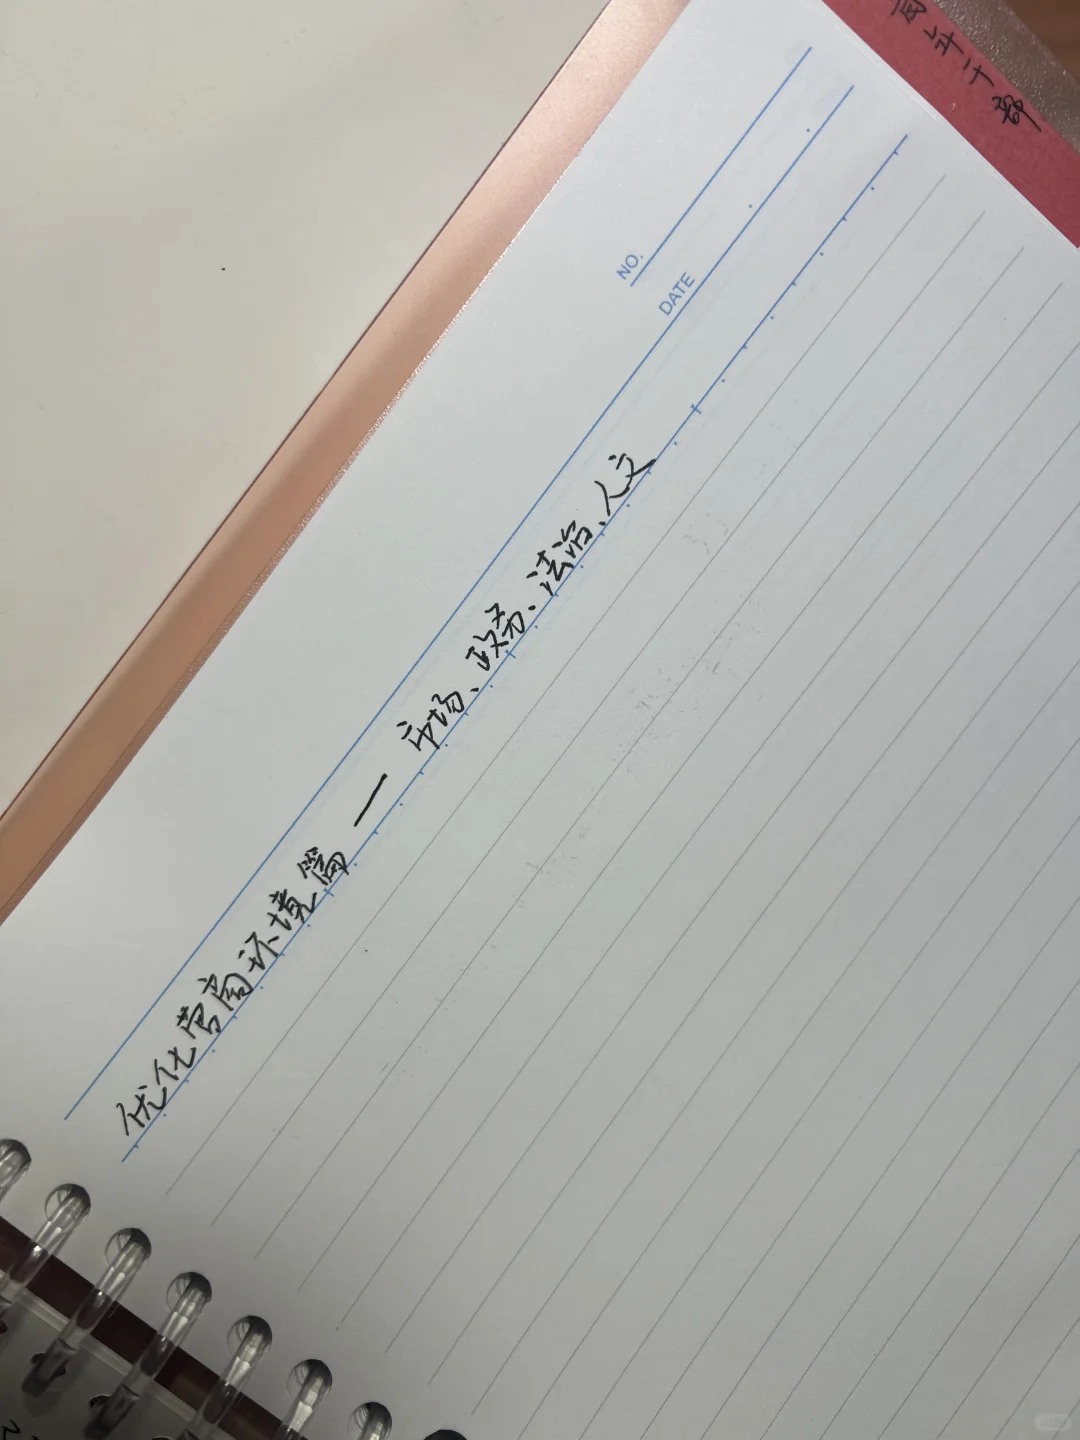 NO.
DATE
优化营商环境篇 — 市场、政务、法治、人文
年干部